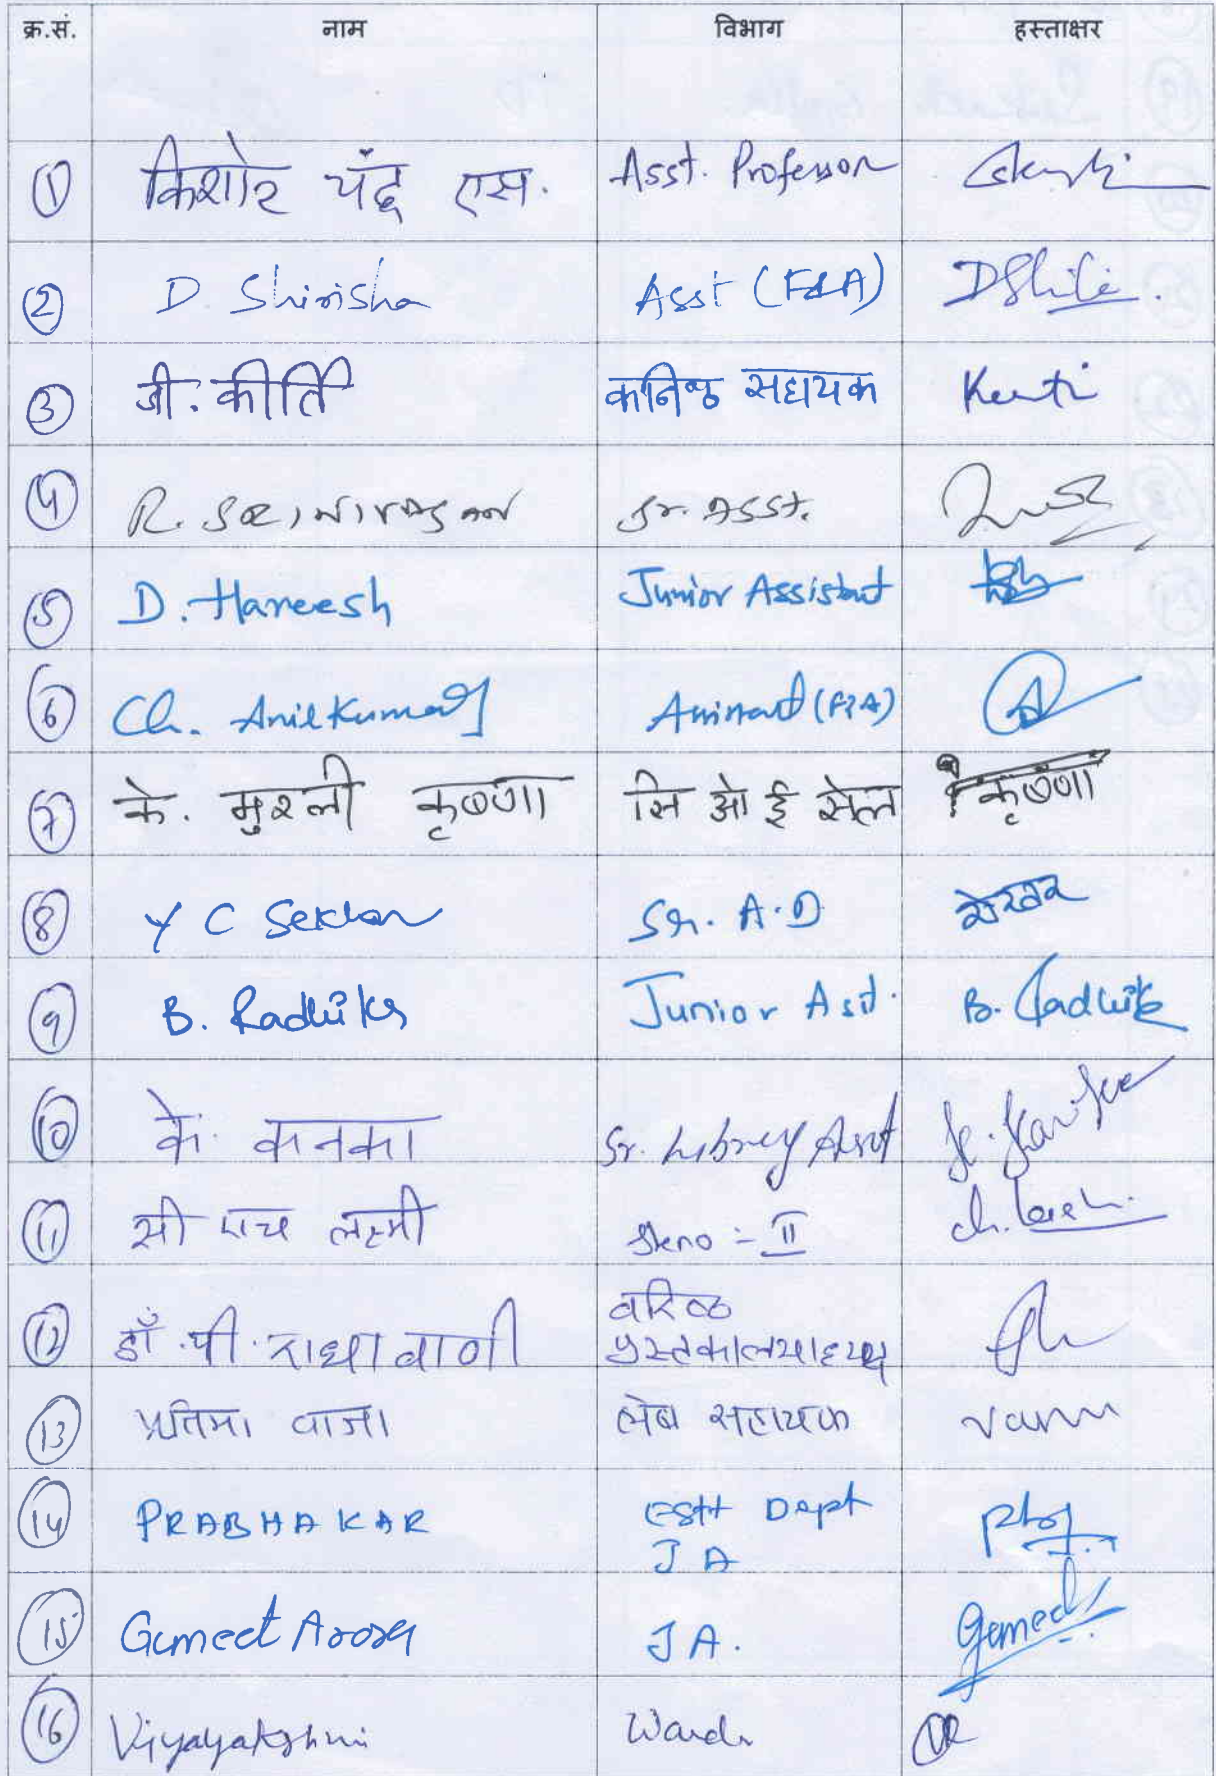 क्र.सं. नाम विभाग हस्ताक्षर
① किशोर चँद्र एस. Asst. Professor
② D Shirisha Asst (F&A)
③ जी. कीर्ति कनिष्ठ सहायक Keerti
④ R. SRINIVASAN Sr. Asst.
⑤ D. Hareesh Junior Assistant
⑥ Ch. Anil Kumar Assistant (F&A)
⑦ के. मुरली कृष्णा सि ओ ई सेल कृष्णा
⑧ Y C Sekhar Sr. A.O शेखर
⑨ B. Radhika Junior Asst. B. Radhika
⑩ के. कनका Sr. Library Asst
⑪ सी एच लक्ष्मी Steno - II
⑫ डॉ. पी. राधा वाणी वरिष्ठ
पुस्तकालयाध्यक्ष
⑬ प्रतिमा लेब सहायक
⑭ PRABHAKAR Estt Dept
JA
⑮ Gurmeet Arora JA. Gurmeet
⑯ Vijayalakshmi